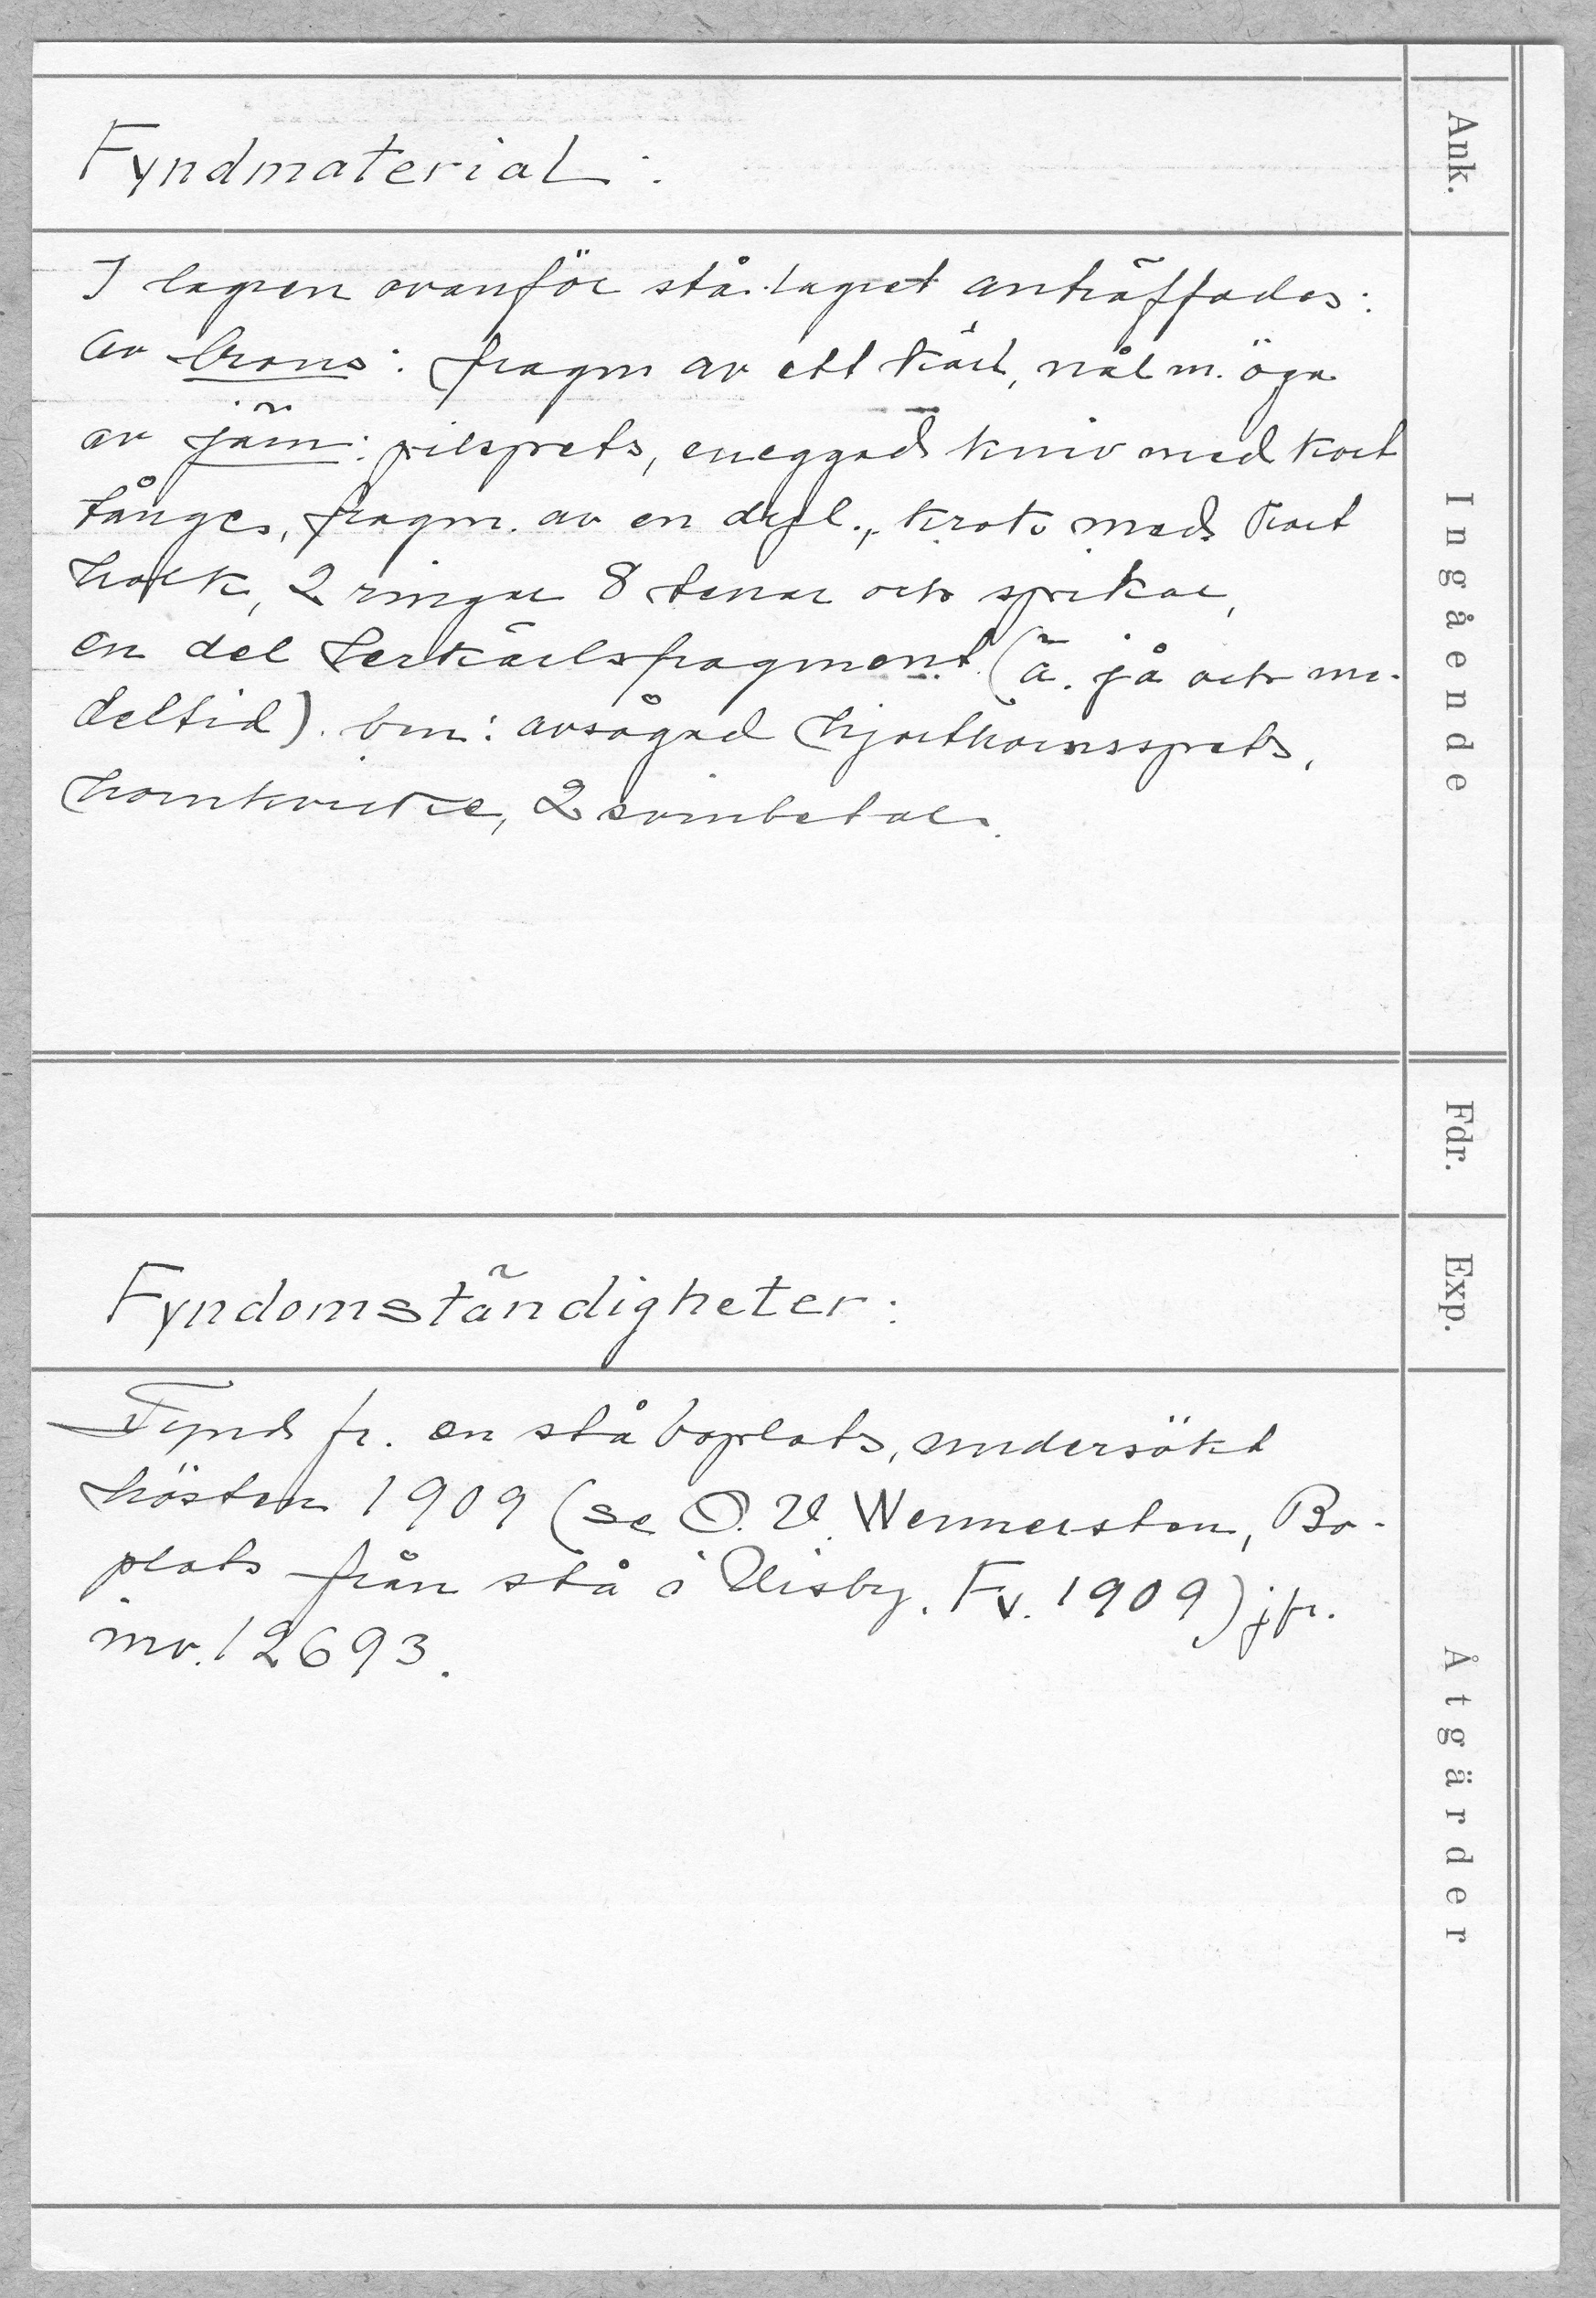 Ank.
Fyndmaterial:
Ingående
I lagren ovanför stå-lagret anträffades:
av brons: fragm av ett kärl, nål m. öga
av järn: pilspets, eneggad kniv med kort
tånge, fragm. av en dyl., krok med kort
holk, 2 ringar 8 tenar och spikar,
en del lerkärlsfragment (ä. jå och me-
deltid). ben: avsågad hjorthornsspets,
hornbricka, 2 svinbetar.
Fdr.
Exp.
Fyndomständigheter:
Åtgärder
Fynd fr. en stå boplats, undersökt
hösten 1909 (se O. V. Wennersten, Bo-
plats från stå i Visby. Fv. 1909) jfr.
inv. 12693.